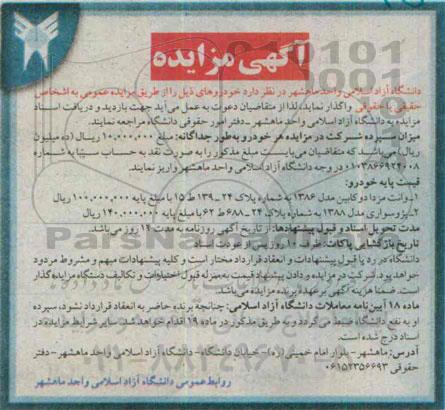 آگهی مزایده
دانشگاه آزاد اسلامی واحد ماهشهر در نظر دارد خودروهای ذیل را از طریق مزایده عمومی به اشخاص
حقیقی یا حقوقی واگذار نماید لذا از متقاضیان دعوت به عمل می‌آید جهت بازدید و دریافت اسناد
مزایده به دانشگاه آزاد اسلامی واحد ماهشهر - دفتر امور حقوقی دانشگاه مراجعه نمایند.
میزان سپرده شرکت در مزایده هر خودرو به‌طور جداگانه: مبلغ ۱۰,۰۰۰,۰۰۰ ریال (ده میلیون
ریال) می‌باشد که متقاضیان می‌بایست مبلغ مذکور را به صورت نقد به حساب سیبا به شماره
۰۱۰۳۸۶۶۹۲۴۰۰۸ در وجه دانشگاه آزاد اسلامی واحد ماهشهر واریز نمایند.
قیمت پایه خودرو:
۱ـ وانت مزدا دو کابین مدل ۱۳۸۶ به شماره پلاک ۲۴ - ۱۳۹ ط ۱۵ با مبلغ پایه ۱۰۰,۰۰۰,۰۰۰ ریال
۲ـ پژو سواری مدل ۱۳۸۸ به شماره پلاک ۲۴ - ۶۸۸ ط ۶۲ با مبلغ پایه ۱۴۰,۰۰۰,۰۰۰ ریال
مدت تحویل اسناد و قبول پیشنهادها: از تاریخ آگهی روزنامه به مدت ۱۴ روز می‌باشد.
تاریخ بازگشایی پاکات: ظرف ۱۰ روز پس از عودت اسناد
دانشگاه در رد یا قبول پیشنهادات و انعقاد قرارداد مختار است و کلیه پیشنهادات مبهم و مشروط مردود
خواهد بود. شرکت در مزایده و دادن پیشنهاد قیمت به‌منزله قبول اختیارات و تکالیف دستگاه مزایده گذار
است. ضمنا هزینه آگهی برعهده برنده مزایده می‌باشد.
ماده ۱۸ آیین‌نامه معاملات دانشگاه آزاد اسلامی: چنانچه برنده حاضر به انعقاد قرارداد نشود، سپرده
او به نفع دانشگاه ضبط می‌گردد و به طریق مذکور در ماده ۱۹ اقدام خواهد شد. سایر شرایط مزایده در
اسناد درج شده است.
آدرس: ماهشهر - بلوار امام خمینی (ره) - خیابان دانشگاه - دانشگاه آزاد اسلامی واحد ماهشهر - دفتر
حقوقی ۰۶۱۵۲۳۵۶۶۹۳
روابط عمومی دانشگاه آزاد اسلامی واحد ماهشهر